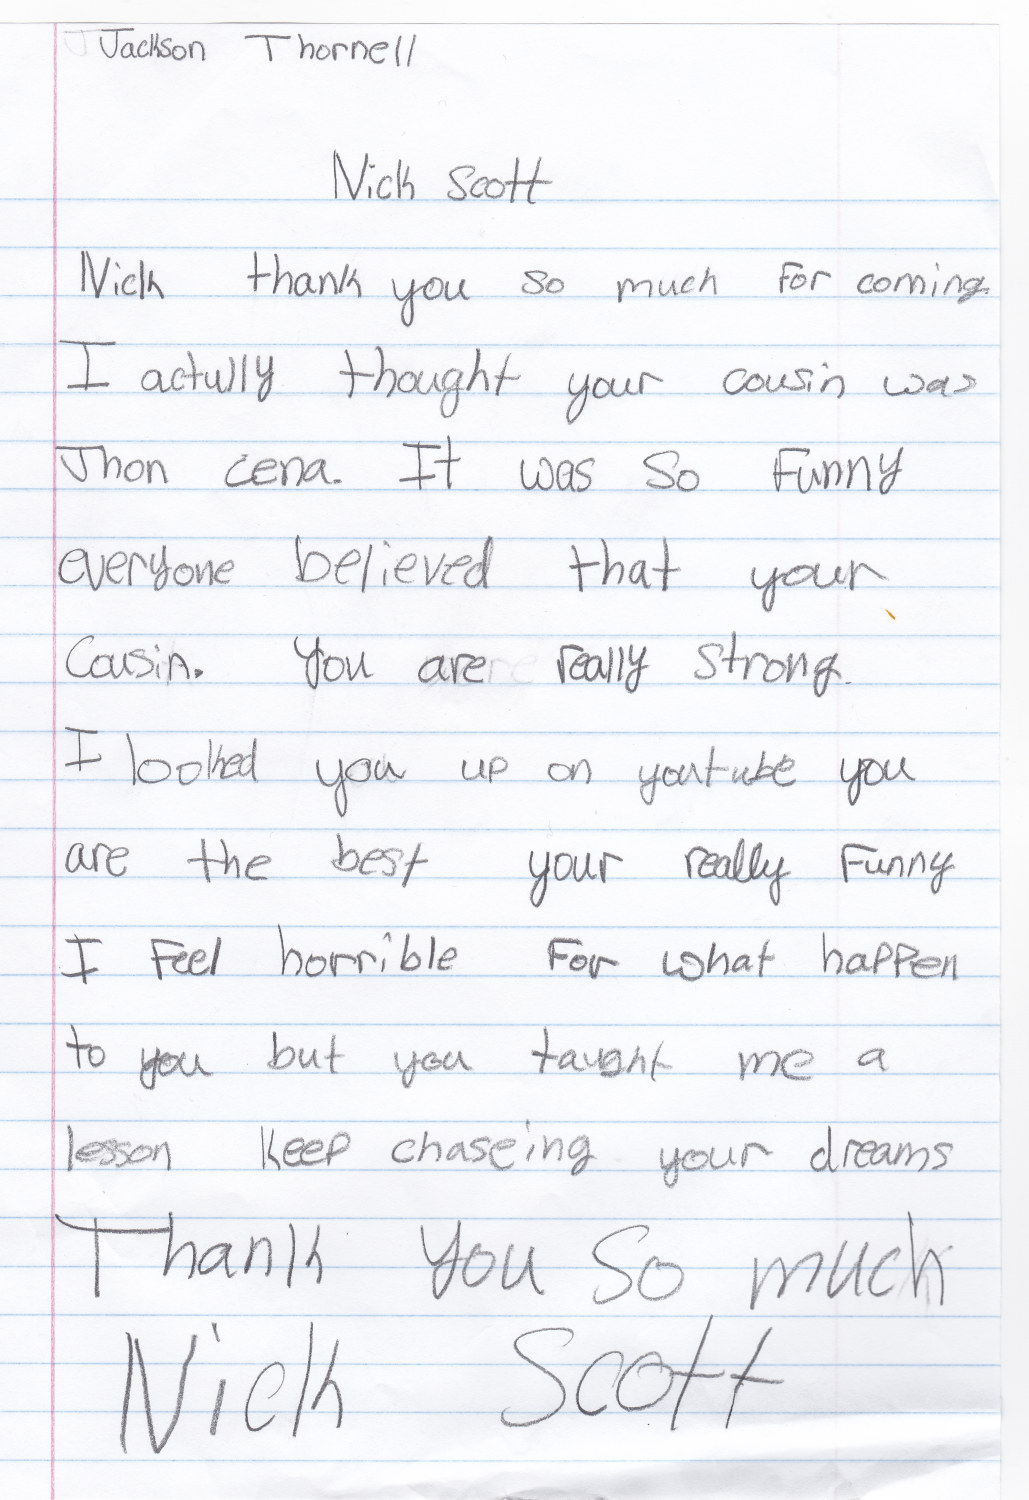 Jackson Thornell
Nick Scott
Nick thank you so much For coming.
I actully thought your cousin was
Jhon cena. It was So Funny
everyone believed that your
Cousin. You are really strong.
I looked you up on youtube you
are the best your really Funny
I Feel horrible For what happen
to you but you taught me a
lesson keep chaseing your dreams
Thank you So much
Nick Scott